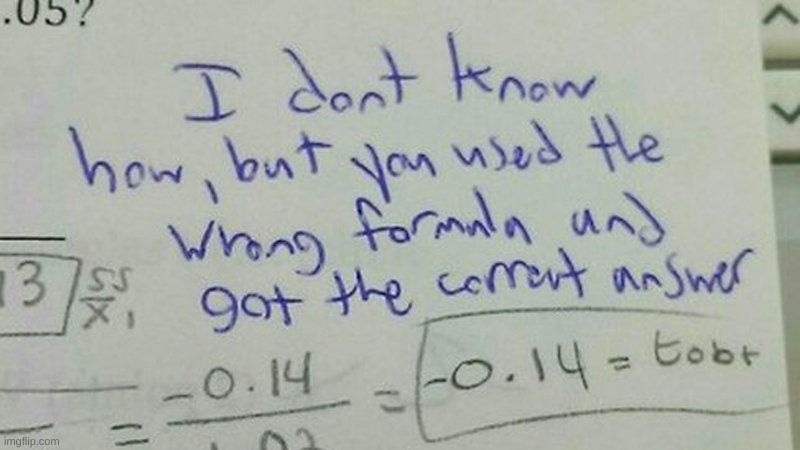 .05?
I dont know
how, but you used the
wrong formula and
got the correct answer
13
SS
X̄₁
-0.14
= 
= -0.14 = tobt
imgflip.com